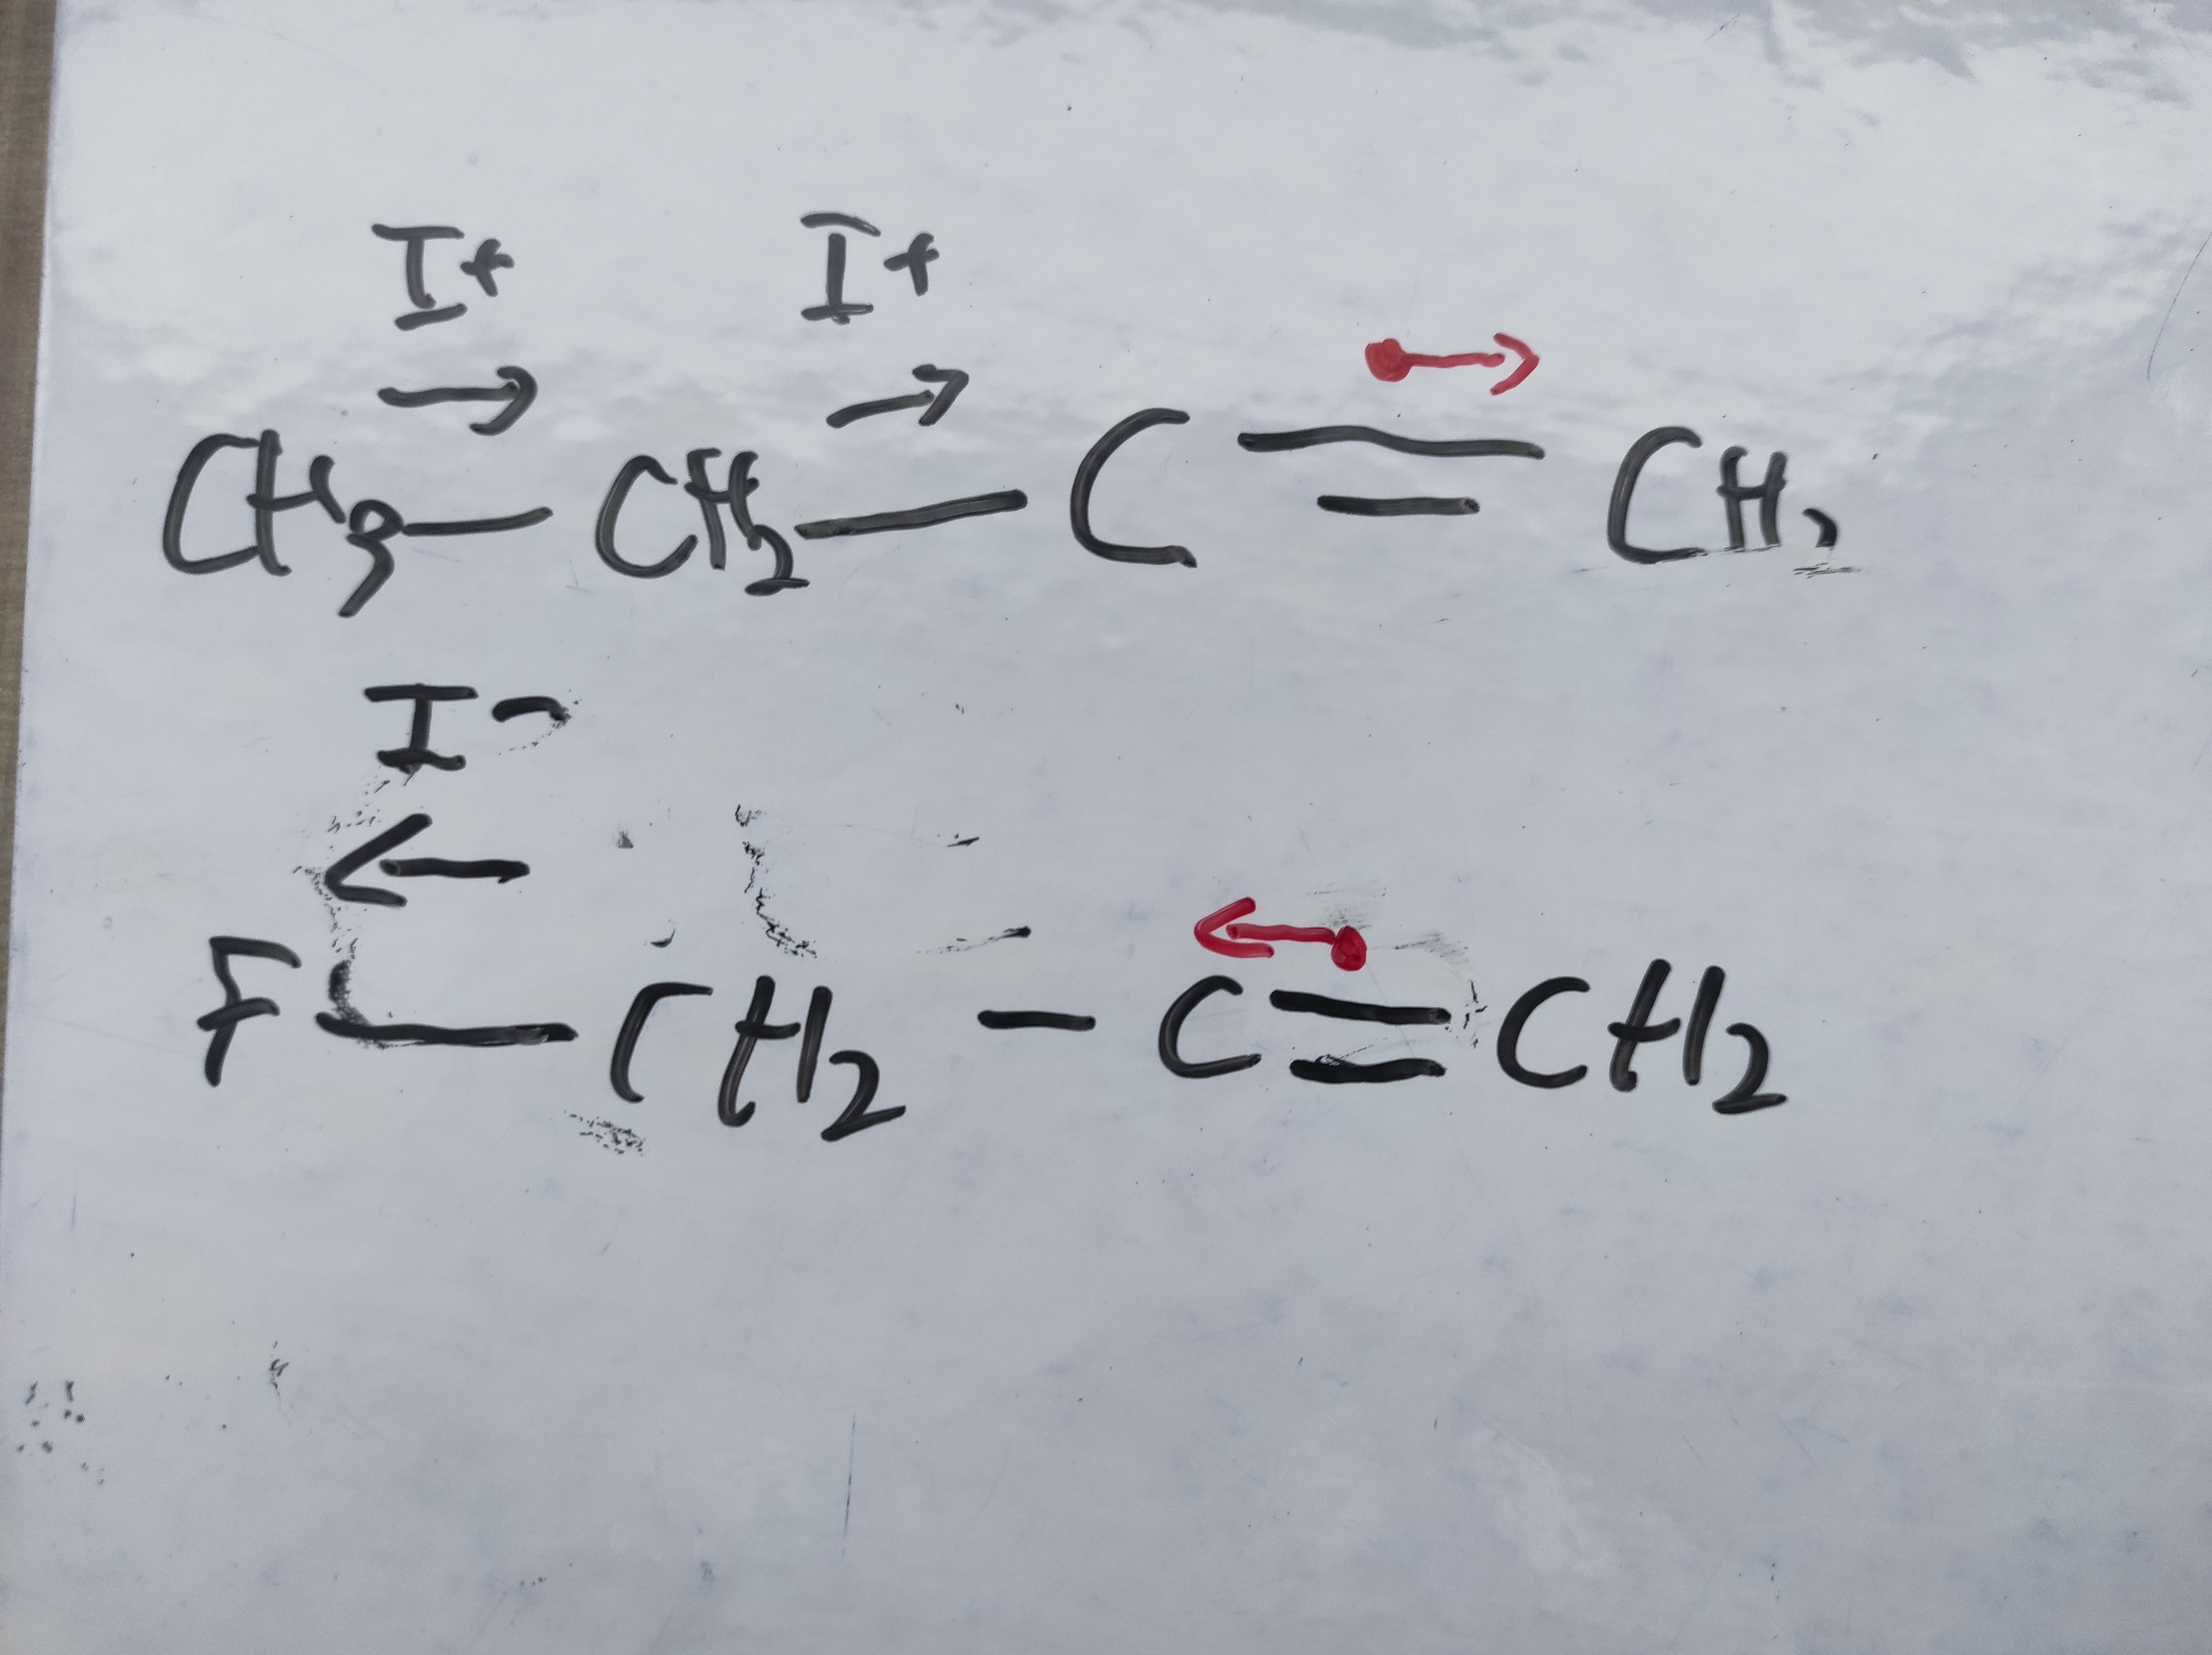 I+ I+
→ → →
CH3—CH2—C=CH2
I-
← ←
F—CH2-C=CH2